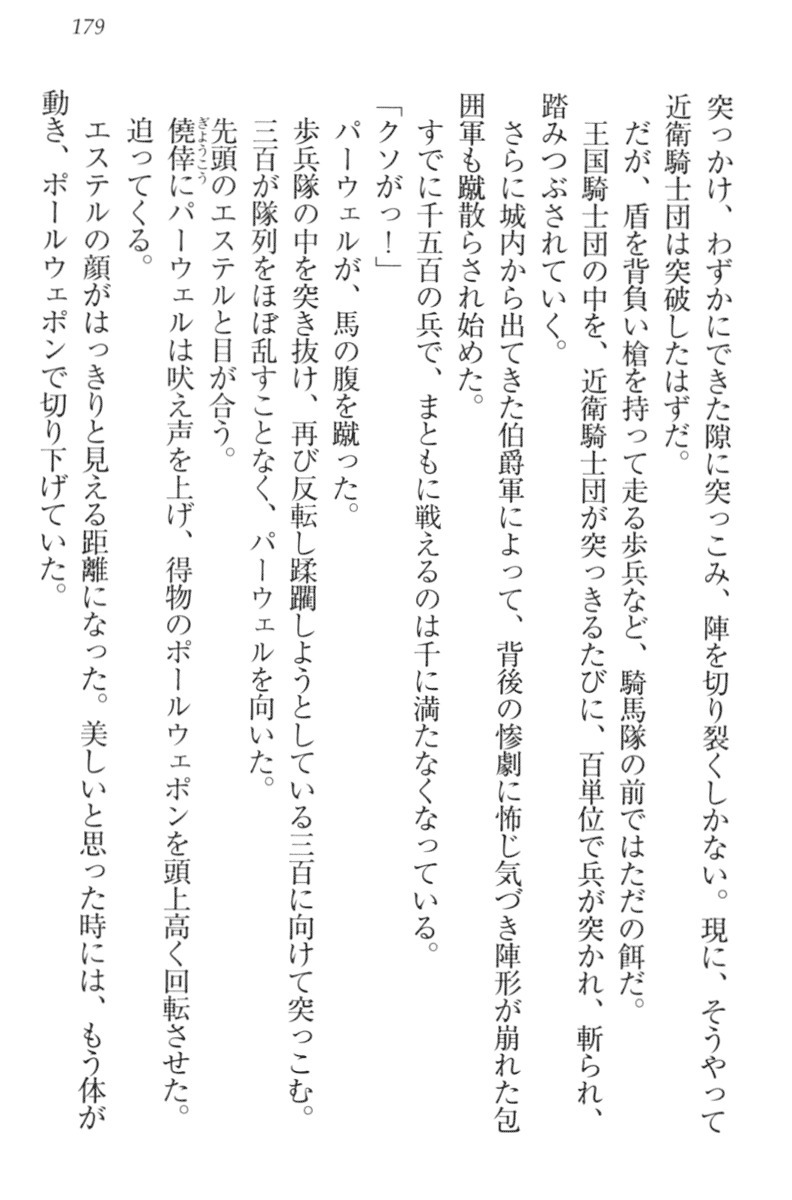 179
突っかけ、わずかにできた隙に突っこみ、陣を切り裂くしかない。現に、そうやって
近衛騎士団は突破したはずだ。
だが、盾を背負い槍を持って走る歩兵など、騎馬隊の前ではただの餌だ。
王国騎士団の中を、近衛騎士団が突っきるたびに、百単位で兵が突かれ、斬られ、
踏みつぶされていく。
さらに城内から出てきた伯爵軍によって、背後の惨劇に怖じ気づき陣形が崩れた包
囲軍も蹴散らされ始めた。
すでに千五百の兵で、まともに戦えるのは千に満たなくなっている。
「クソがっ！」
パーウェルが、馬の腹を蹴った。
歩兵隊の中を突き抜け、再び反転し蹂躙しようとしている三百に向けて突っこむ。
三百が隊列をほぼ乱すことなく、パーウェルを向いた。
先頭のエステルと目が合う。
僥倖にパーウェルは吠え声を上げ、得物のポールウェポンを頭上高く回転させた。
ぎょうこう
迫ってくる。
エステルの顔がはっきりと見える距離になった。美しいと思った時には、もう体が
動き、ポールウェポンで切り下げていた。